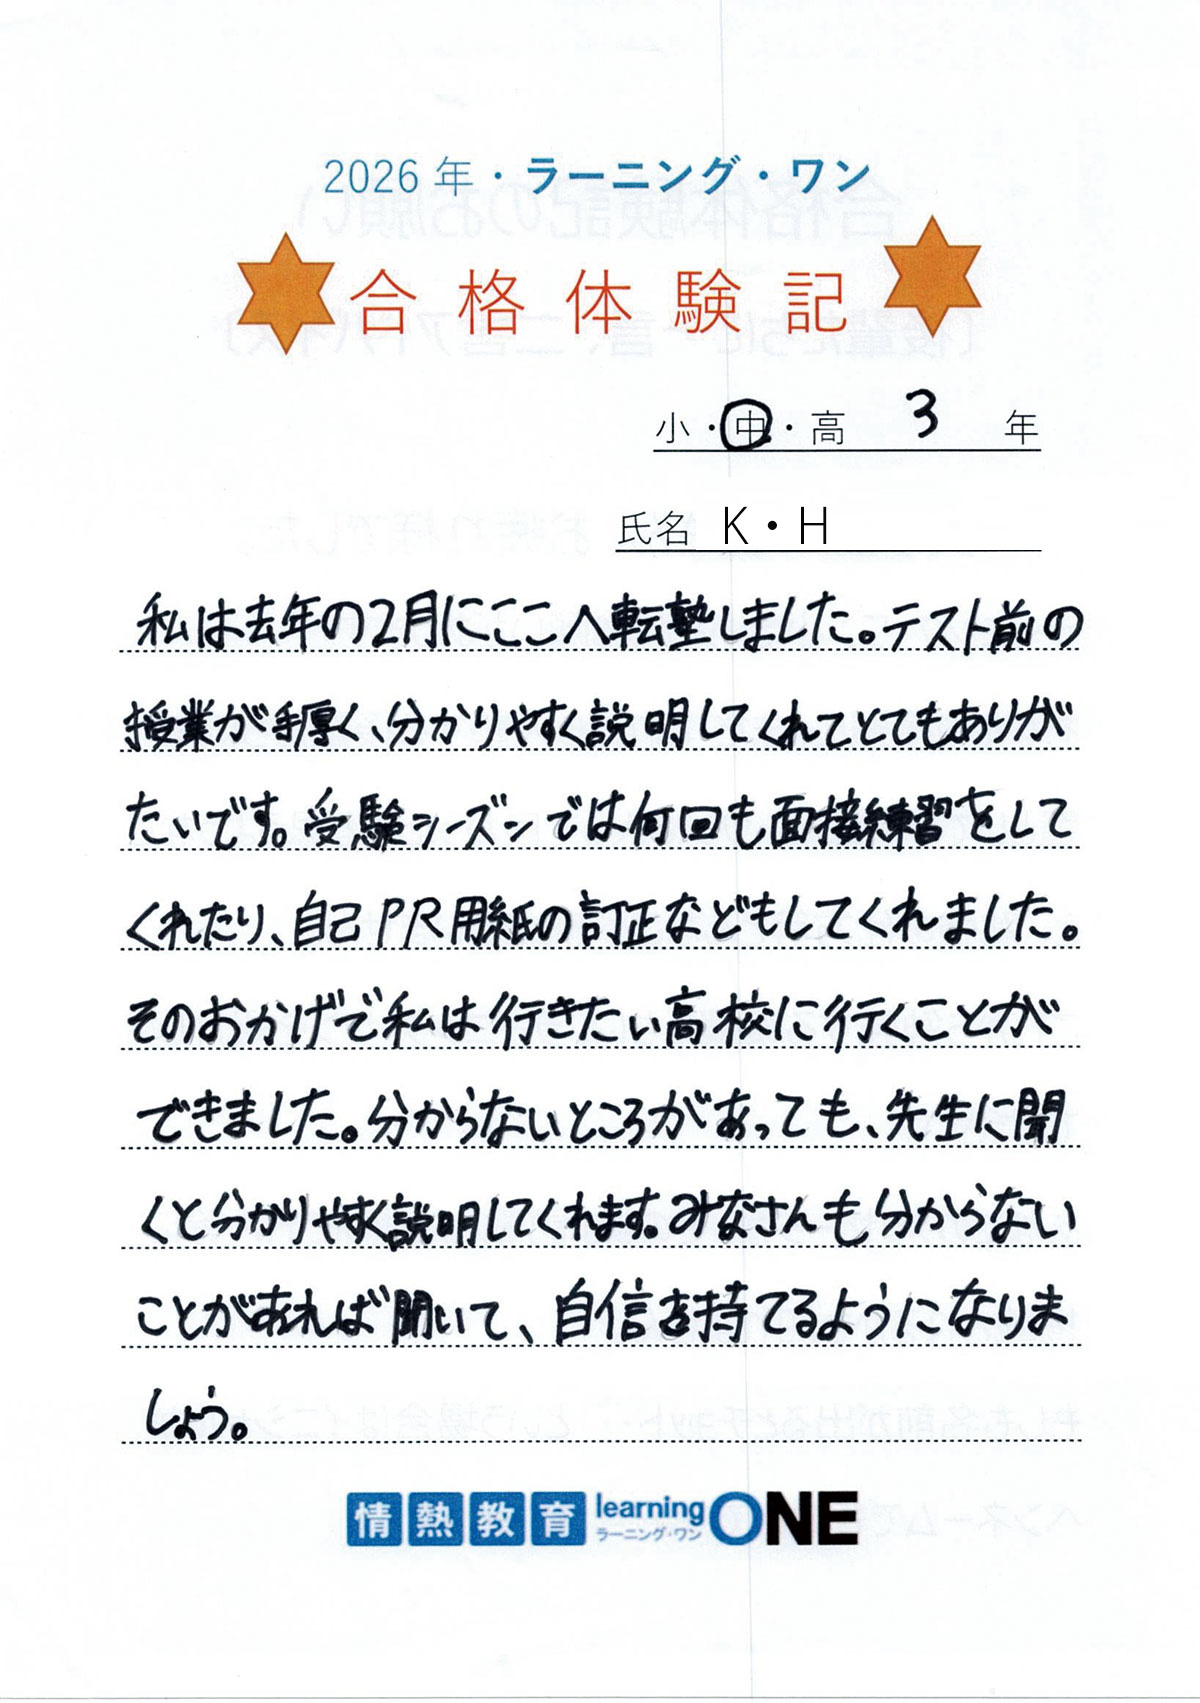 2026年・ラーニング・ワン
合格体験記
小・中・高 3 年
氏名 K・H
私は去年の2月にここへ転塾しました。テスト前の
授業が手厚く、分かりやすく説明してくれてとてもありが
たいです。受験シーズンでは何回も面接練習をして
くれたり、自己PR用紙の訂正などもしてくれました。
そのおかげで私は行きたい高校に行くことが
できました。分からないところがあっても、先生に聞
くと分かりやすく説明してくれます。みなさんも分からない
ことがあれば聞いて、自信を持てるようになりま
しょう。
情熱教育 learning ラーニング・ワン ONE